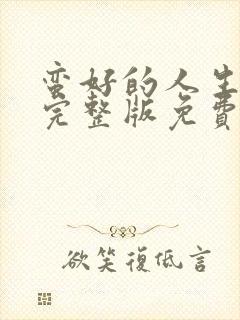 蛮好的人生
完整版免費
欲笑復低言